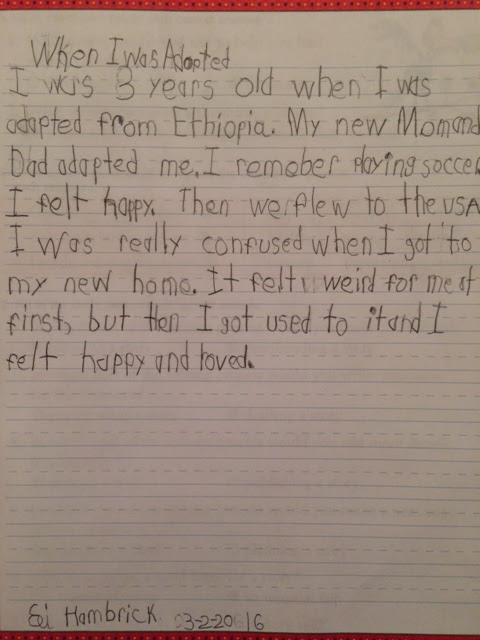 When I was Adopted
I was 3 years old when I was
adopted from Ethiopia. My new Mom and
Dad adopted me. I remober playing soccer
I felt happy. Then we flew to the USA
I was really confused when I got to
my new home. It felt weird for me at
first, but then I got used to it and I
felt happy and loved.
Hambrick 3-2-2016